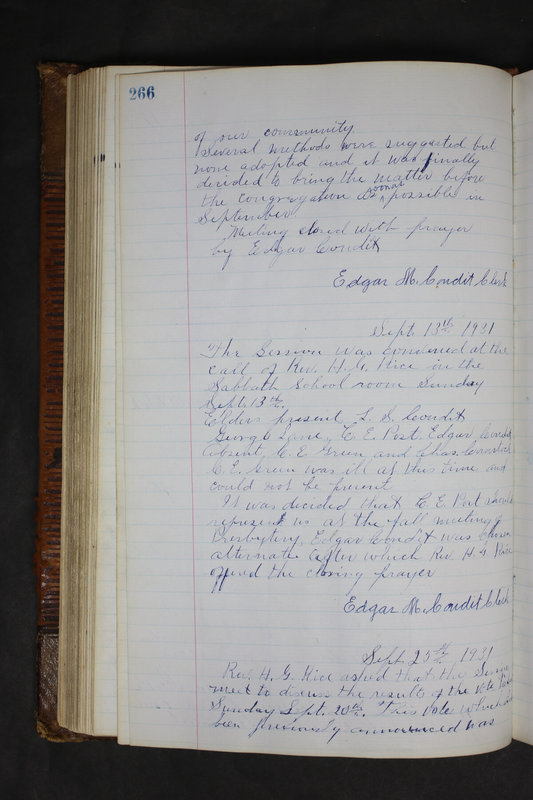 266
of our community
Several methods were suggested but
none adopted and it was finally
decided to bring the matter before
the congregation as soon as possible in
September.
Meeting closed with prayer
by Edgar Condit
Edgar M. Condit Clerk
Sept. 13th 1931
The Session was convened at the
call of Rev. H. G. Rice in the
Sabbath School room Sunday
Sept. 13th.
Elders present, L. S. Condit
George Lane, C. E. Post, Edgar Condit
absent, C. E. Green and Chas. Comstock
C. E. Green was ill at this time and
could not be present
It was decided that C. E. Post should
represent us at the fall meeting of
Presbytery, Edgar Condit was chosen
alternate after which Rev. H. G. Rice
offered the closing prayer
Edgar M. Condit Clerk
Sept. 25th 1931
Rev. H. G. Rice asked that the Session
meet to discuss the results of the vote
Sunday Sept. 20th. This vote which
been previously announced was